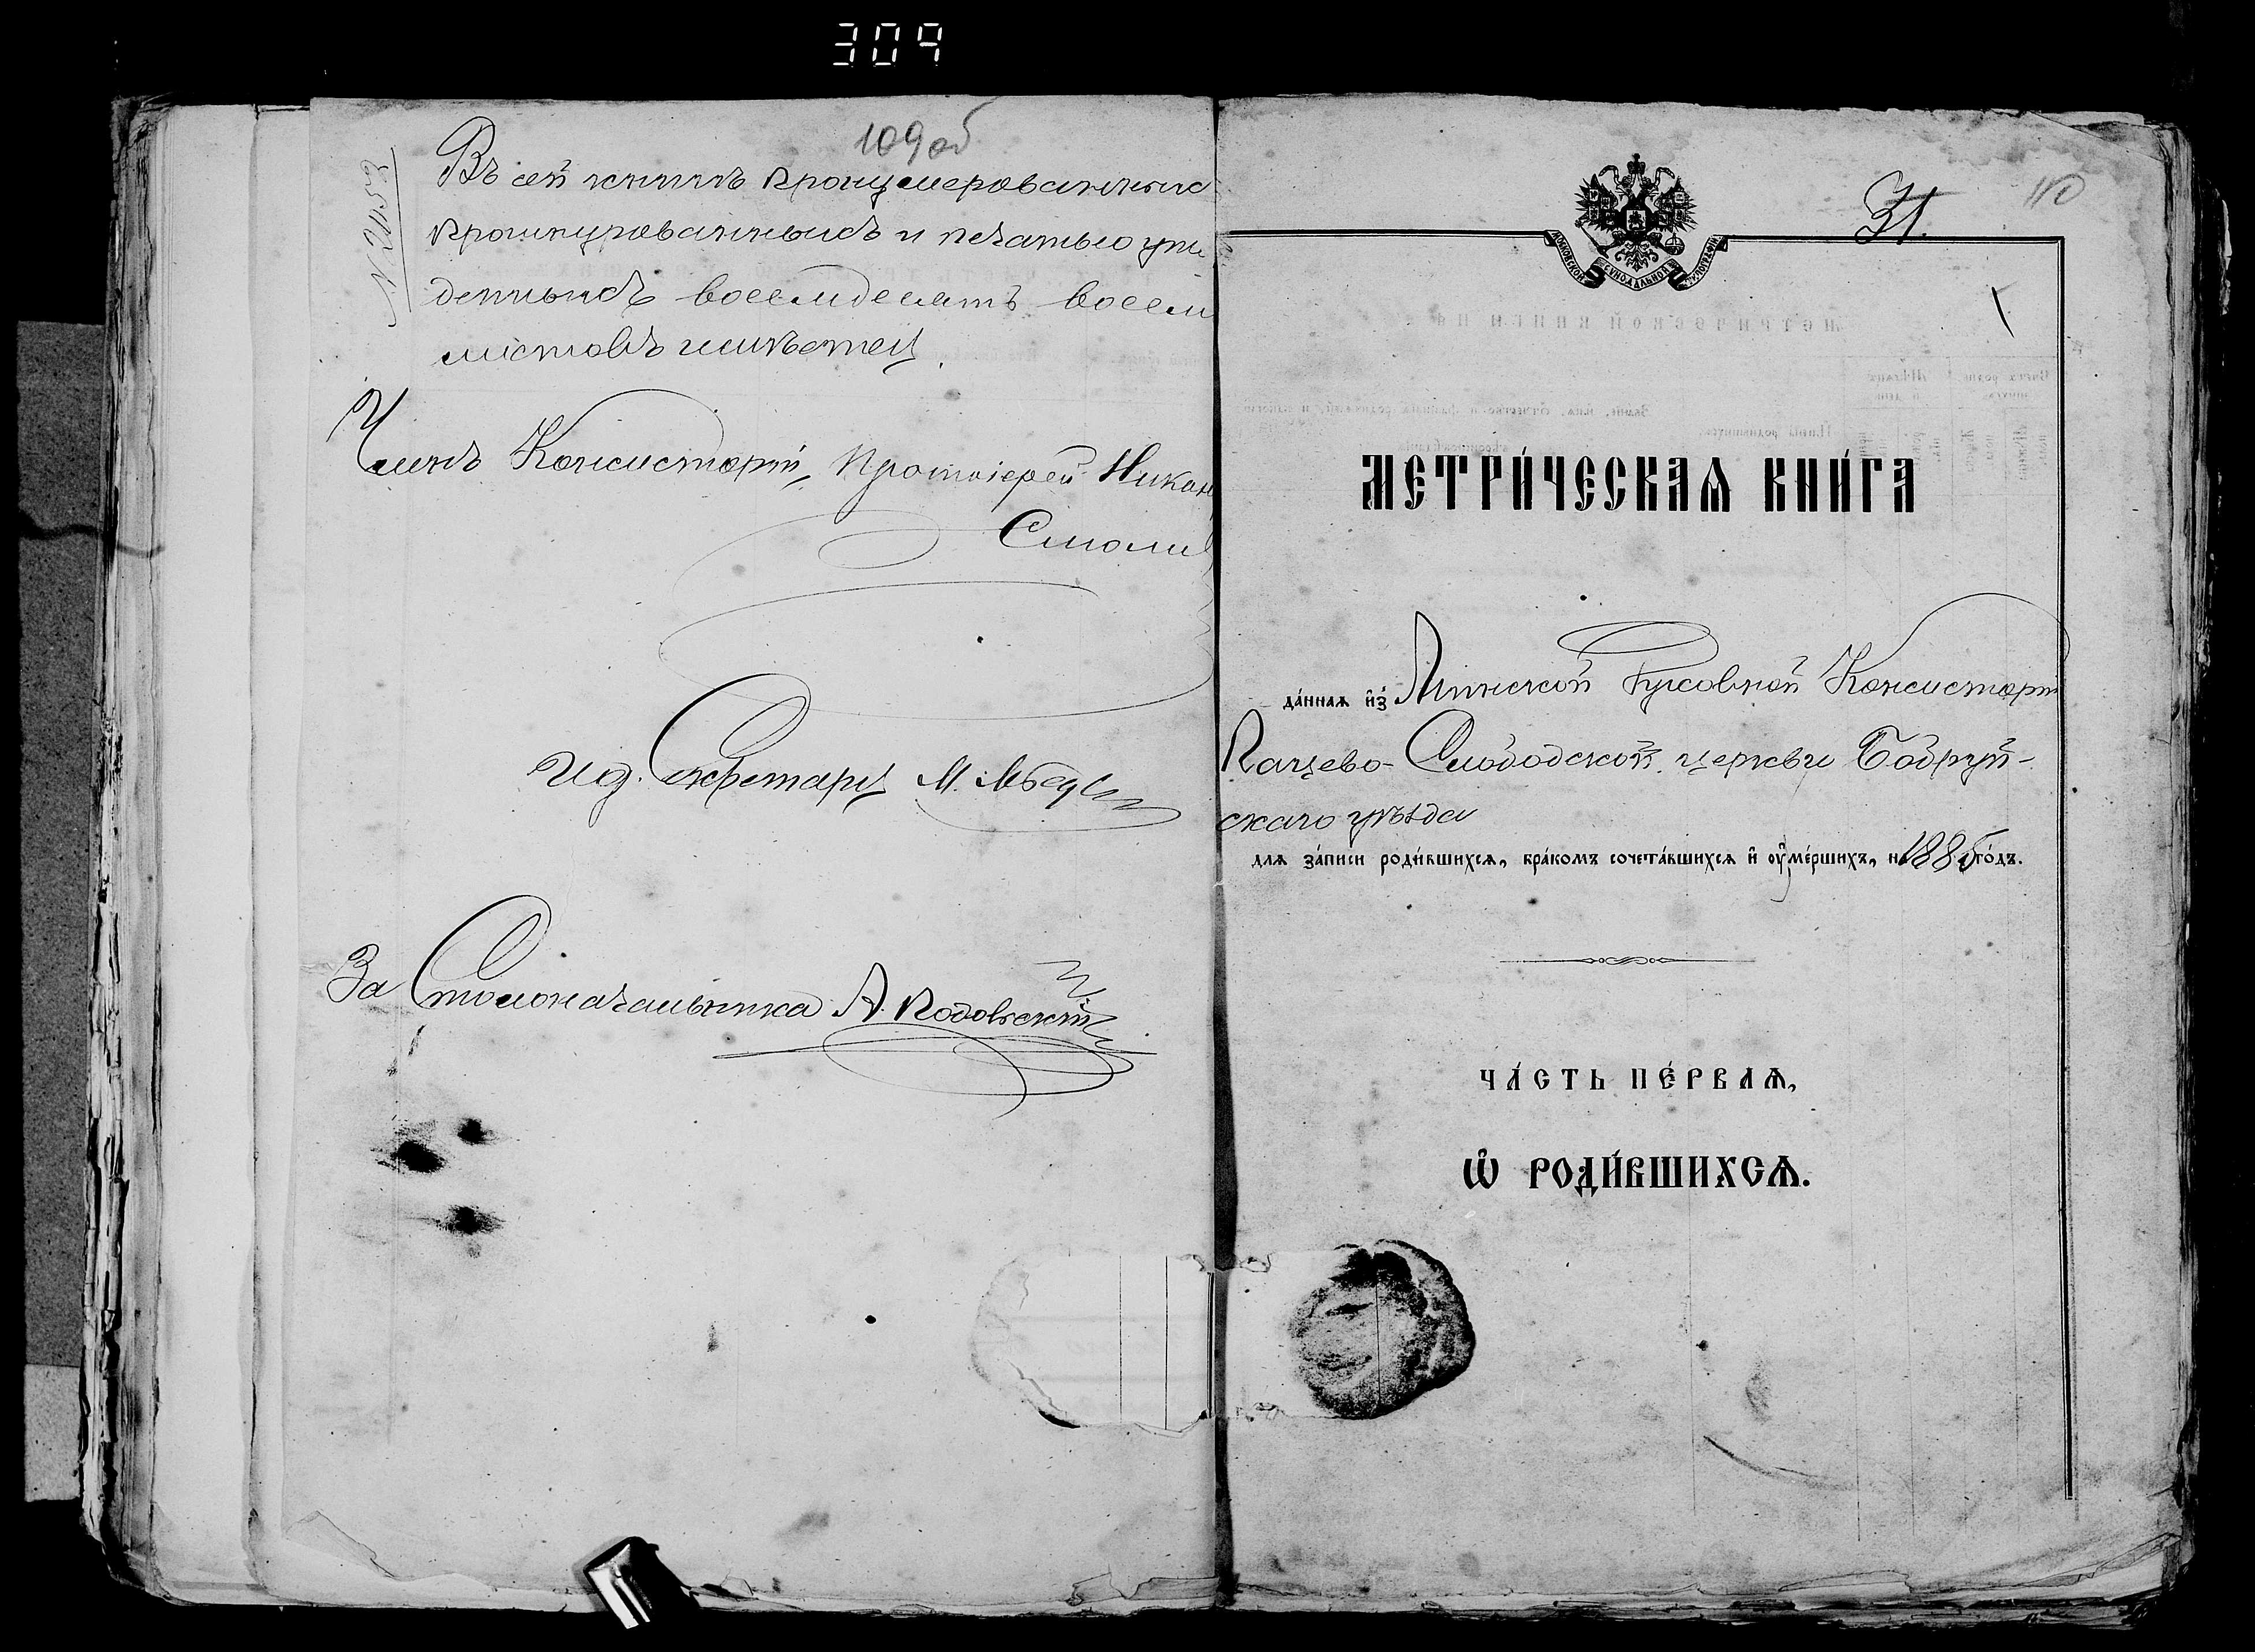 304
109 об
№ 21153
Въ сей книгѣ пронумерованныхъ
прошнурованныхъ и печатью утвер
жденныхъ восемьдесятъ восемь
листовъ имѣется.
Членъ Консисторіи, Протоіерей Никан
Смоли
И. д. Секретаря М.
За Столоначальника А.
31.
110
1
МОСКОВСКОЙ СѴНОДАЛЬНОЙ ТИПОГРАФІИ
МЕТРИ́ЧЕСКАѦ КНИ́ГА
да́ннаѧ и҆з̾ Минской Духовной Консисторіи
Качево-Слободской церкви Бобруй-
скаго уѣзда
длѧ за́писи роди́вшихсѧ, бра́комъ сочета́вшихсѧ и҆ ᲂу҆ме́ршихъ, на 1885 го́дъ.
ЧА́СТЬ ПЕ́РВАѦ,
Ѡ҆ РОДИ́ВШИХСѦ.